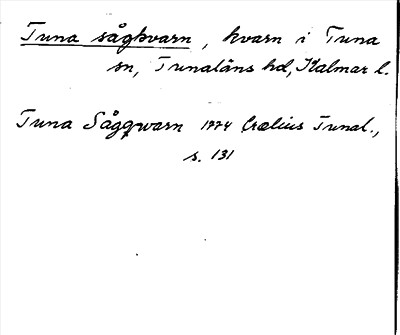 Tuna sågkvarn, kvarn i Tuna
sn, Tunaläns hd, Kalmar l.
Tuna Sågqwarn 1774 Craelius Tunal.,
s. 131